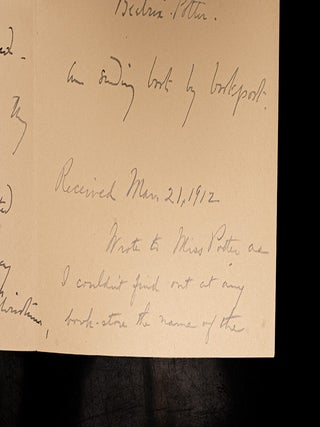 Beatrix Potter.
am sending book by bookpost.
They
Received Mar. 21, 1912
Wrote to Miss Potter as
I couldn't find out at any
book-store the name of the
Christmas,